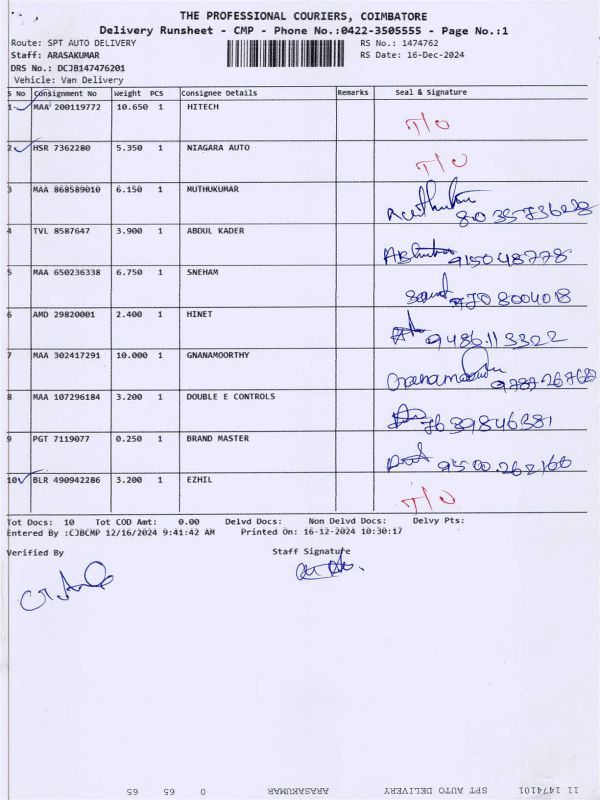 THE PROFESSIONAL COURIERS, COIMBATORE
Delivery Runsheet - CMP - Phone No.:0422-3505555 - Page No.:1
Route: SPT AUTO DELIVERY RS No.: 1474762
Staff: ARASAKUMAR RS Date: 16-Dec-2024
DRS No.: DCJB147476201
Vehicle: Van Delivery
S No Consignment No Weight PCS Consignee Details Remarks Seal & Signature
1 MAA 200119772 10.650 1 HITECH
T/O
2 HSR 7362280 5.350 1 NIAGARA AUTO
T/O
3 MAA 868589010 6.150 1 MUTHUKUMAR
4 TVL 8587647 3.900 1 ABDUL KADER
915048778
5 MAA 650236338 6.750 1 SNEHAM
6 AMD 29820001 2.400 1 HINET
9486113322
7 MAA 302417291 10.000 1 GNANAMOORTHY
8 MAA 107296184 3.200 1 DOUBLE E CONTROLS
7639846381
9 PGT 7119077 0.250 1 BRAND MASTER
9500.262166
10 BLR 490942286 3.200 1 EZHIL
T/O
Tot Docs: 10 Tot COD Amt: 0.00 Delvd Docs: Non Delvd Docs: Delvy Pts:
Entered By :CJBCMP 12/16/2024 9:41:42 AM Printed On: 16-12-2024 10:30:17
Verified By Staff Signature
11 1474101 SPT AUTO DELIVERY ARASAKUMAR 0 65 65